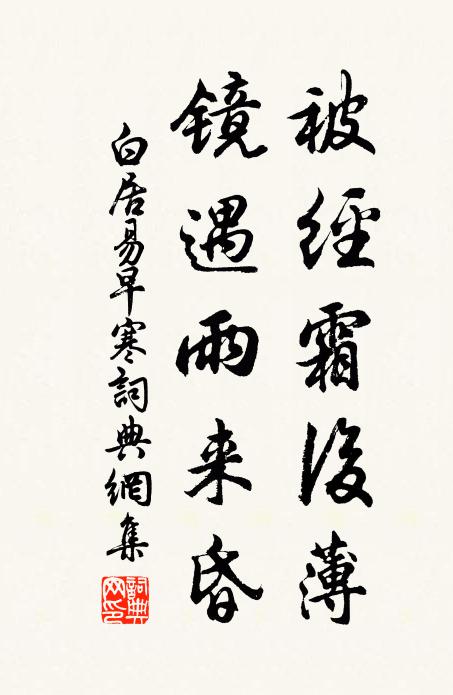 被經霜後薄
镜遇雨来昏
白居易早寒詞典網集
詞典网印